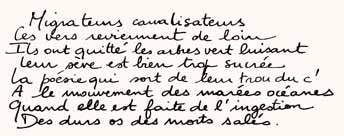 Migrateurs canalisateurs
Les vers reviennent de loin
Ils ont quitté les arbres vert luisant
Leur sève est bien trop sucrée
La poésie qui sort de leur trou du c'
A le mouvement des marées océanes
Quand elle est faite de l'ingestion
Des durs os des morts salés.